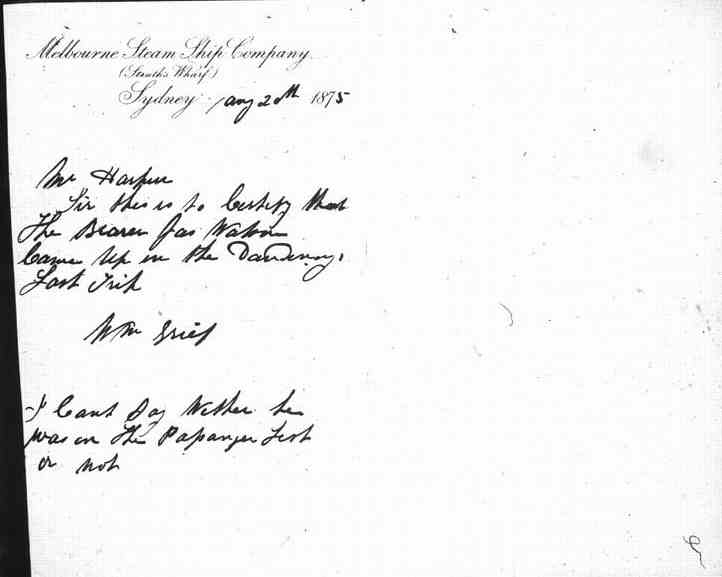 Melbourne Steam Ship Company
(Struth's Wharf)
Sydney Aug 20th 1875
Mr Harper
Sir this is to Certify that
The Bearer Jas Watson
Came Up in the Dandenong
Last Trip
Wm Grief
I Cant Say Wether he
was on The Passanger List
or not